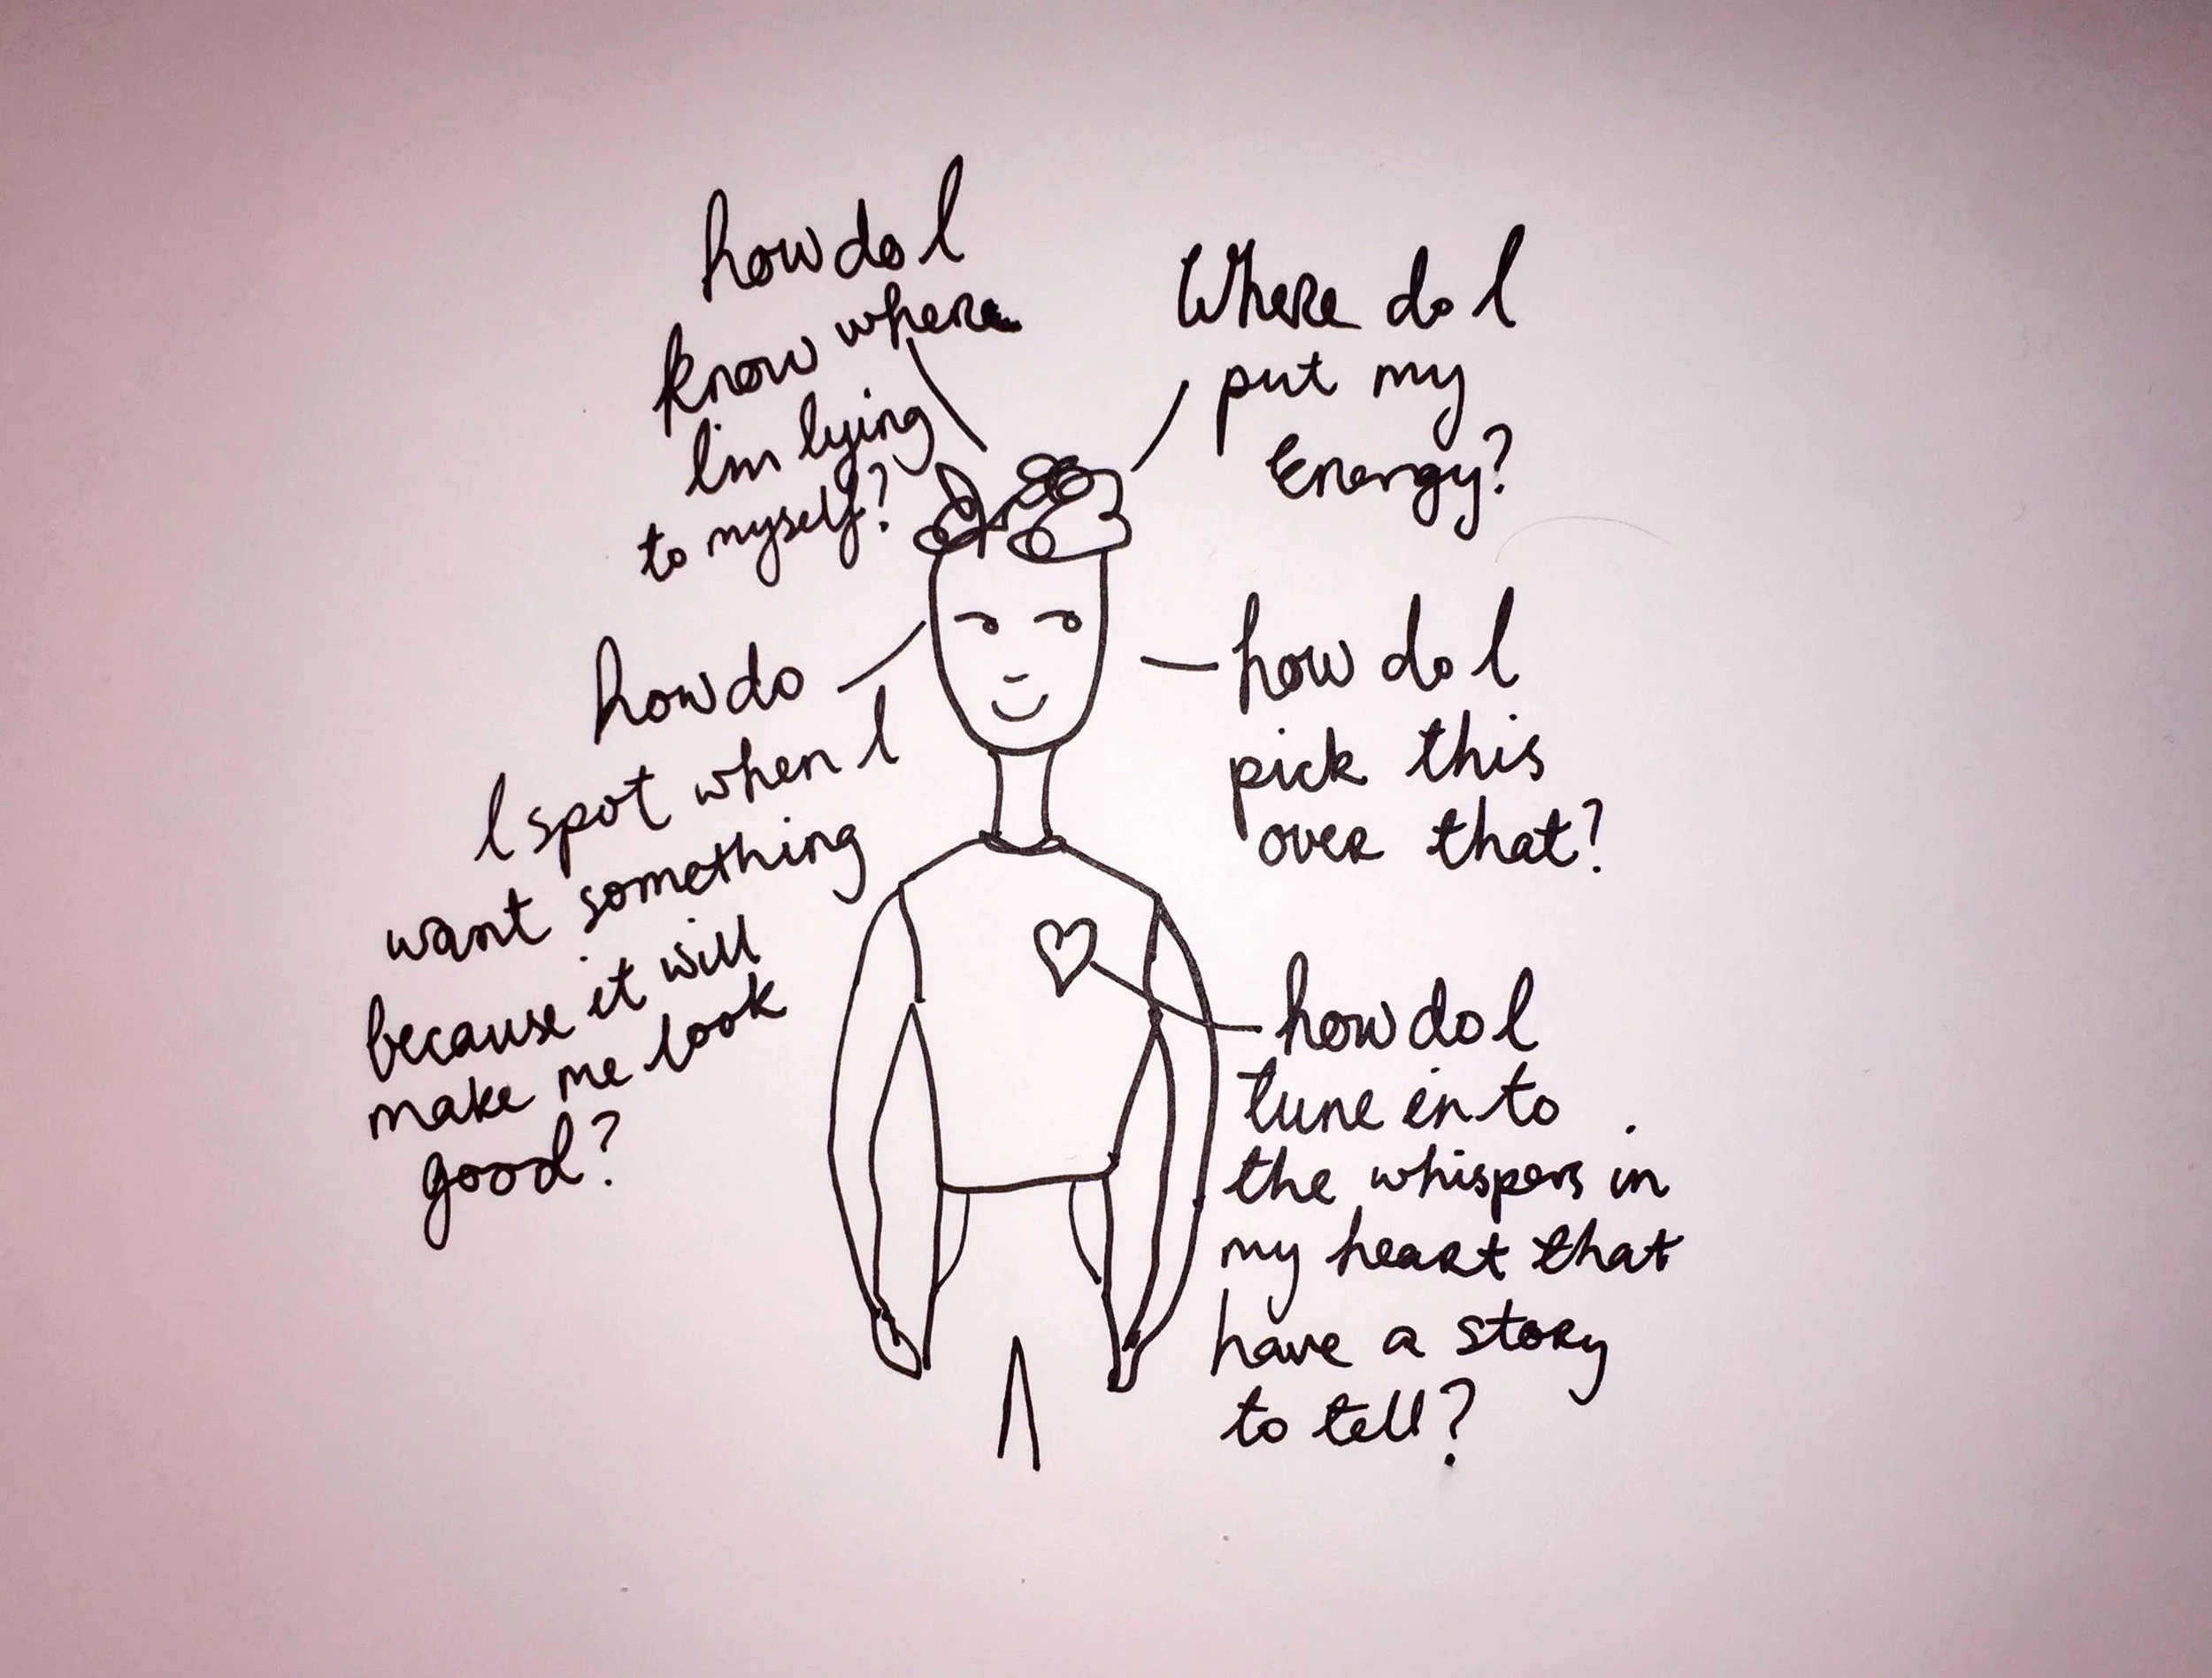 how do I
know where
I'm lying
to myself?
Where do I
put my
Energy?
how do
I spot when I
want something
because it will
make me look
good?
how do I
pick this
over that?
how do I
tune in to
the whispers in
my heart that
have a story
to tell?